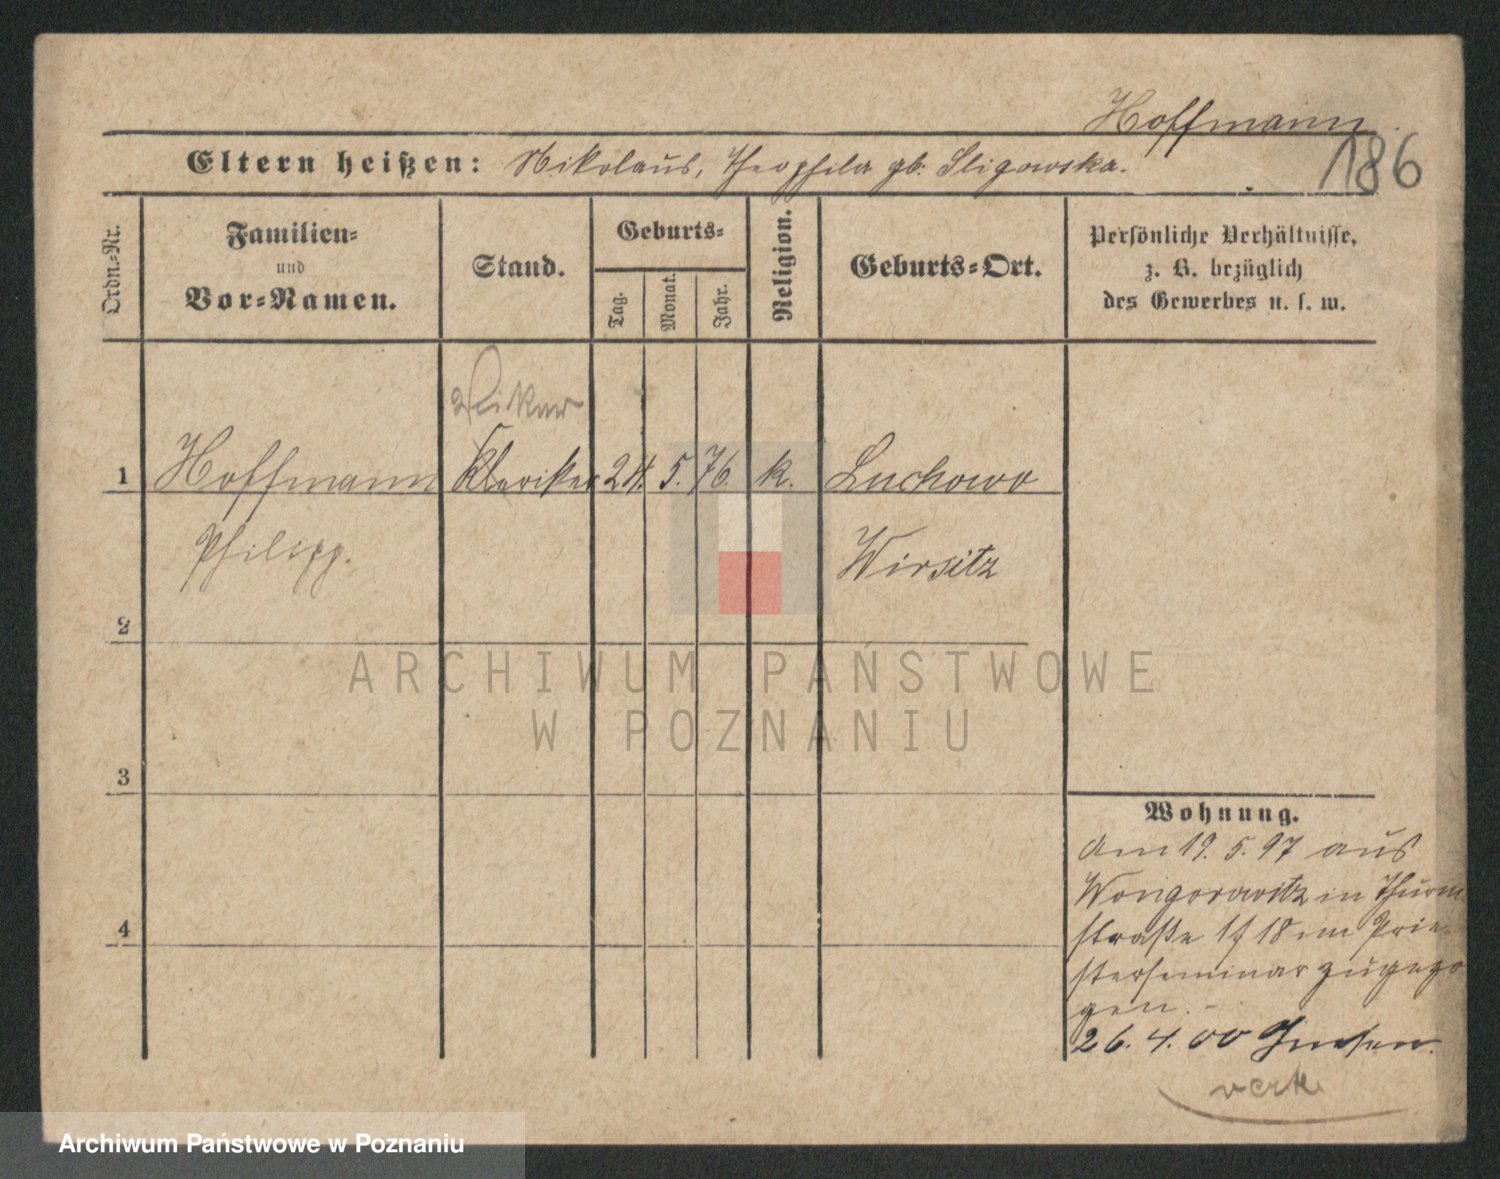 Hoffmann.
186
Eltern heißen: Nikolaus, Theophila gb. Sligowska.
Ordn.-Nr.
Familien-
und
Vor-Namen.
Stand.
Geburts-
Tag.
Monat.
Jahr.
Religion.
Geburts-Ort.
Persönliche Verhältnisse,
z. B. bezüglich
des Gewerbes u. s. w.
Vikar
1 Hoffmann Kleriker 24. 5. 76. k. Luchowo
Philipp. Wirsitz
2
3
4
Wohnung.
Am 19. 5. 97 aus
Wongorwitz in Thurm
straße 17/18 im Prie-
sterseminar zugezo
gen. -
26. 4. 00 Gnesen.
verk
ARCHIWUM PAŃSTWOWE
W POZNANIU
Archiwum Państwowe w Poznaniu